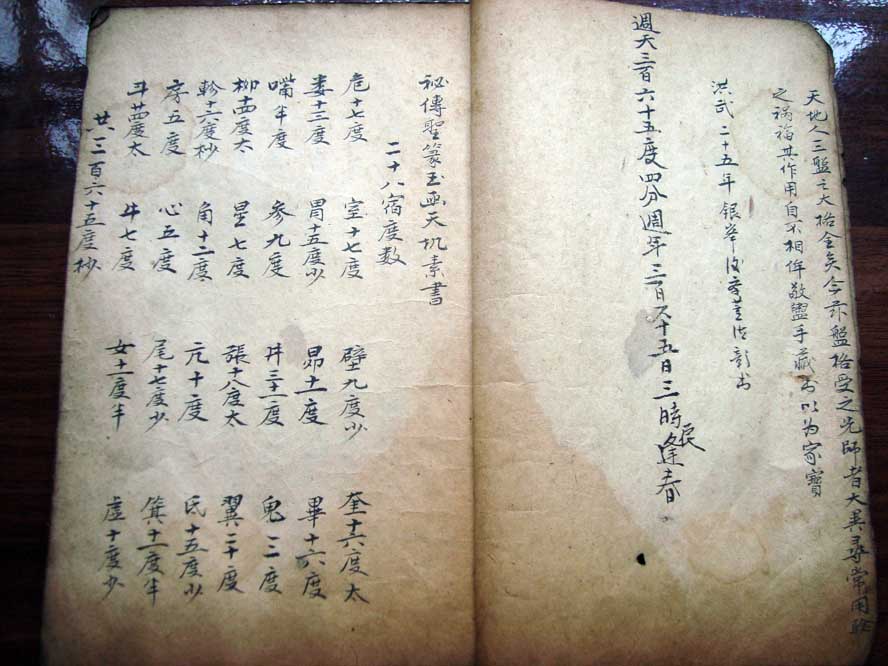 天地人三盤之大格全矣今茲盤格受之先師者大異尋常用
之禍福其作用自不相侔敬盥手藏书以为家寶
洪武二十五年银峯後学董德彰书
週天三百六十五度四分週年三百六十五日三時辰逢春
秘傳聖篆玉函天机素書
二十八宿度数
危十七度 室十七度 壁九度少 奎十六度太
娄十三度 胃十五度少 昴十一度 畢十六度
嘴半度 参九度 井三十一度 鬼二度
柳十四度太 星七度 張十八度太 翼二十度
軫十六度杪 角十二度 元十度 氏十五度少
房五度 心五度 尾十七度少 箕十一度半
斗廿四度太 牛七度 女十一度半 虚十度少
共三百六十五度杪